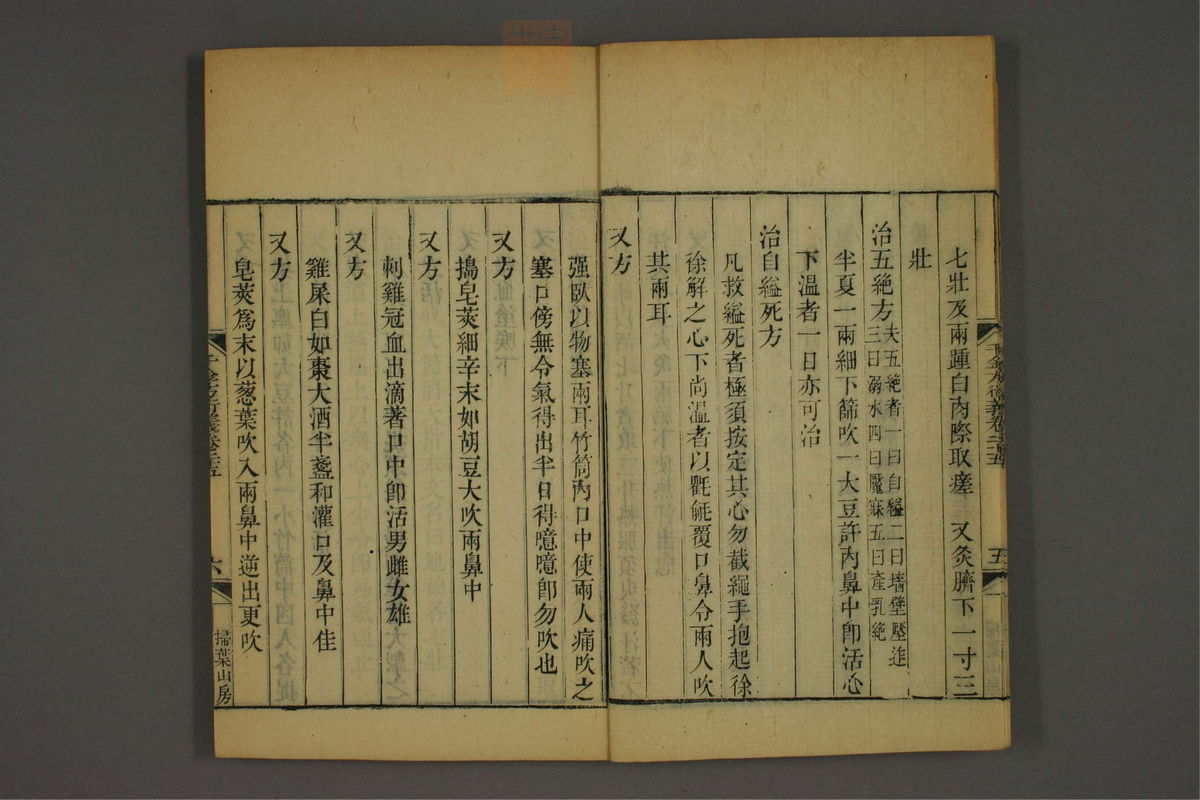 七壯及兩踵白肉際取瘥　又灸臍下一寸三
壯
治五絕方夫五絕者一曰自縊二曰墻壁壓迮
三曰溺水四曰魘寐五曰產乳絕
半夏一兩細下篩吹一大豆許內鼻中卽活心
下温者一日亦可治
治自縊死方
凡救縊死者極須按定其心勿截繩手抱起徐
徐解之心下尚温者以氍毹覆口鼻令兩人吹
其兩耳
又方
强臥以物塞兩耳竹筒內口中使兩人痛吹之
塞口傍無令氣得出半日得噫噫卽勿吹也
又方
搗皂莢細辛末如胡豆大吹兩鼻中
又方
刺雞冠血出滴著口中卽活男雌女雄
又方
雞屎白如棗大酒半盞和灌口及鼻中佳
又方
皂莢爲末以葱葉吹入兩鼻中逆出更吹
五
六
掃葉山房